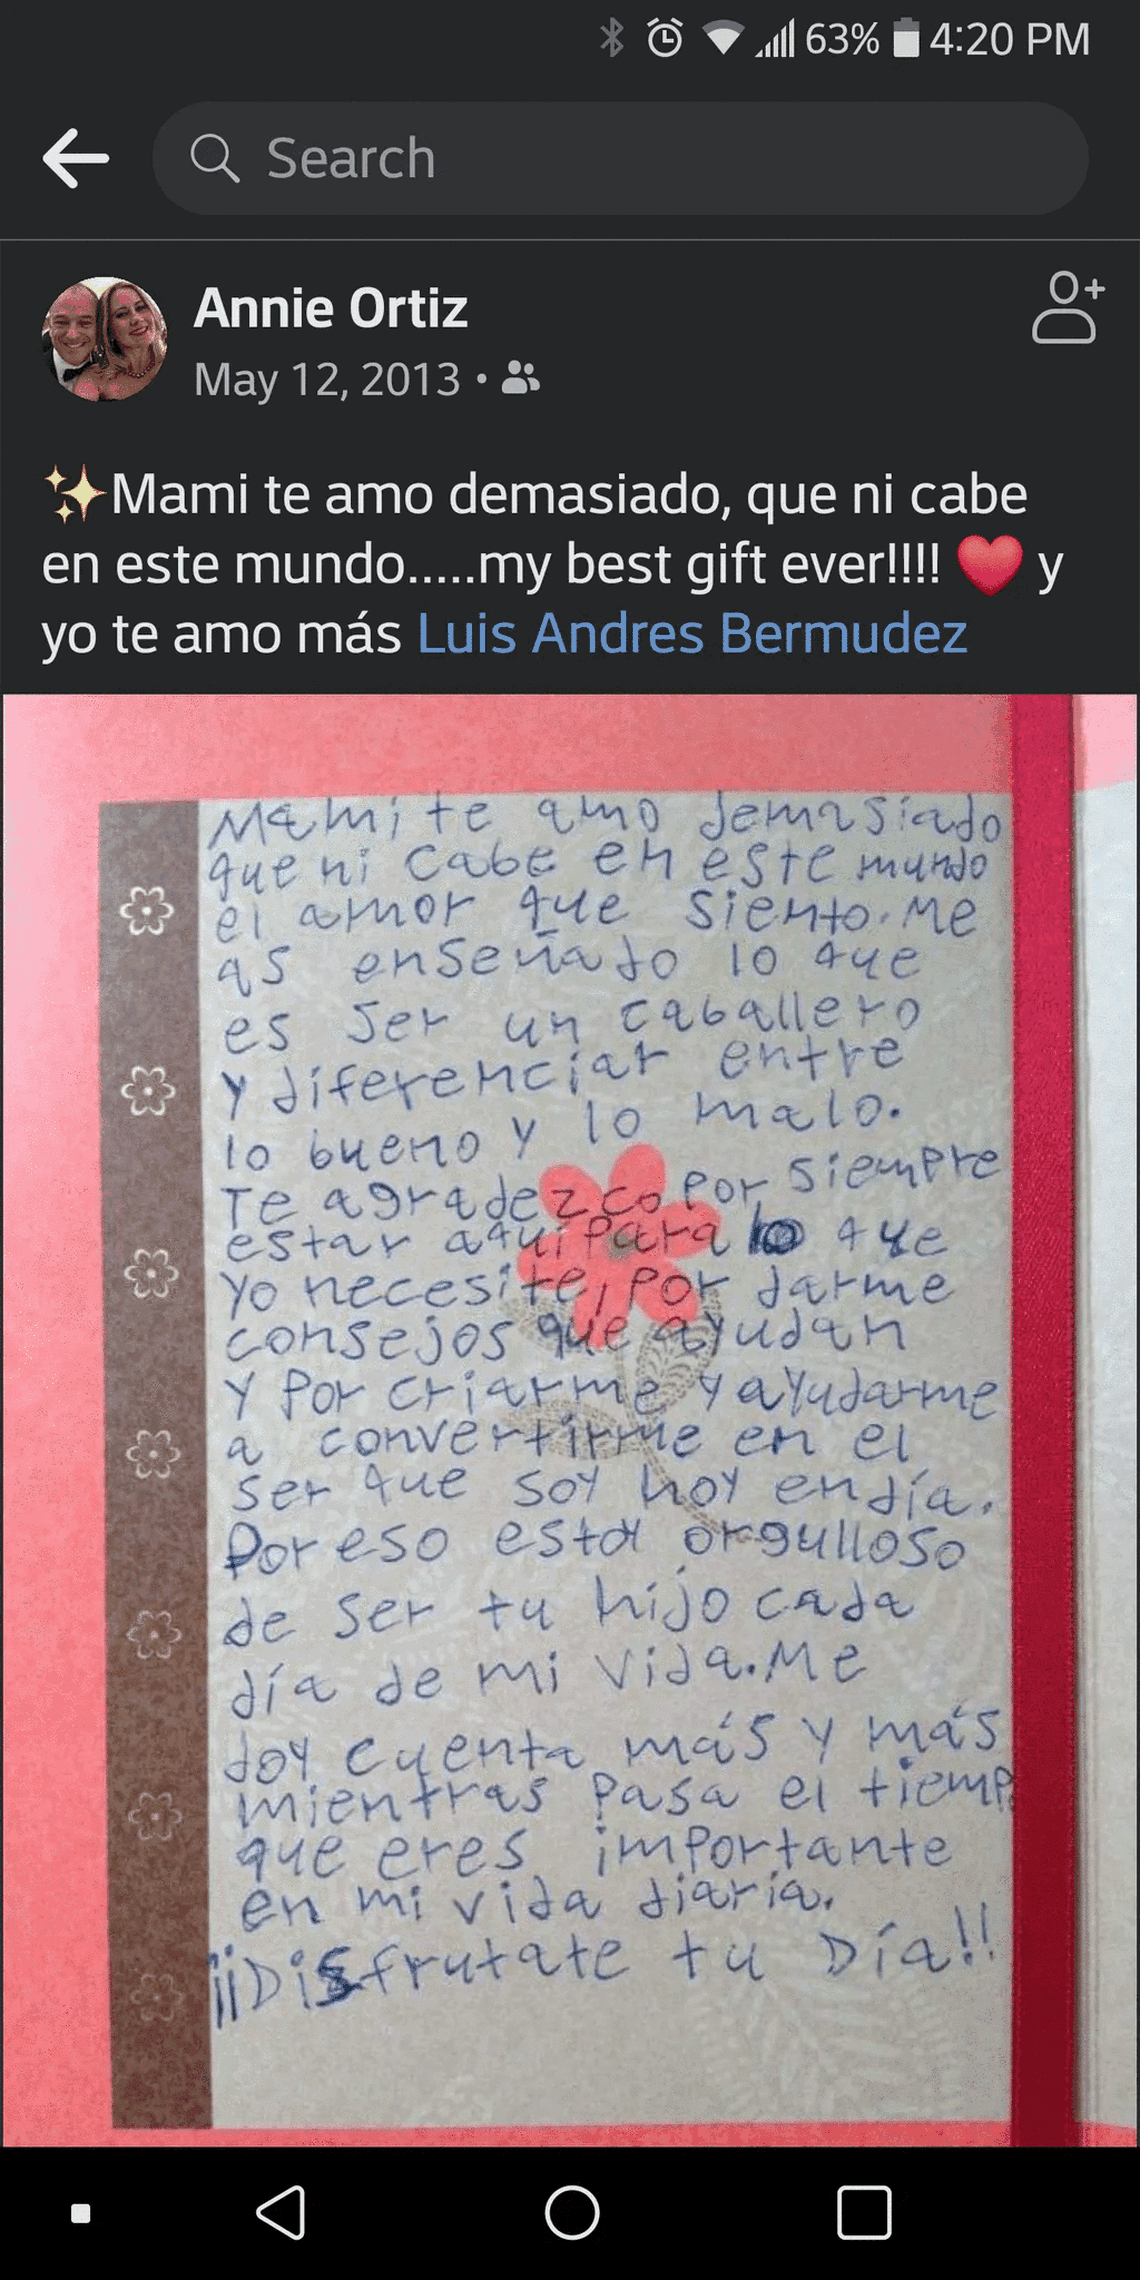 63% 4:20 PM
Search
Annie Ortiz
May 12, 2013 •
✨Mami te amo demasiado, que ni cabe
en este mundo.....my best gift ever!!!! ❤️ y
yo te amo más Luis Andres Bermudez
Mami te amo demasiado
que ni cabe en este mundo
el amor que siento. Me
as enseñado lo que
es ser un caballero
y diferenciar entre
lo bueno y lo malo.
Te agradezco por siempre
estar aquí para lo que
yo necesite, por darme
consejos que ayudan
y por criarme y ayudarme
a convertirme en el
ser que soy hoy en día.
Por eso estoy orgulloso
de ser tu hijo cada
día de mi vida. Me
doy cuenta más y más
mientras pasa el tiemp
que eres importante
en mi vida diaria.
¡¡Disfrutate tu Día!!